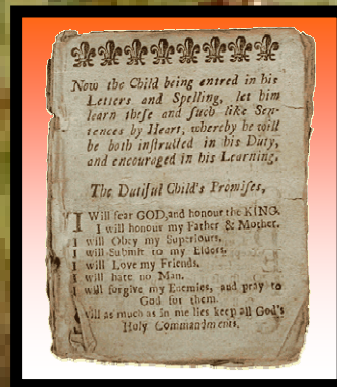 Now the Child being entred in his
Letters and Spelling, let him
learn these and such like Sen-
tences by Heart, whereby he will
be both instructed in his Duty,
and encouraged in his Learning.
The Dutiful Child's Promises,
I Will fear GOD, and honour the KING.
I will honour my Father & Mother.
I will Obey my Superiours.
I will Submit to my Elders.
I will Love my Friends.
I will hate no Man.
I will forgive my Enemies, and pray to
God for them.
will as much as in me lies keep all God's
Holy Commandments.